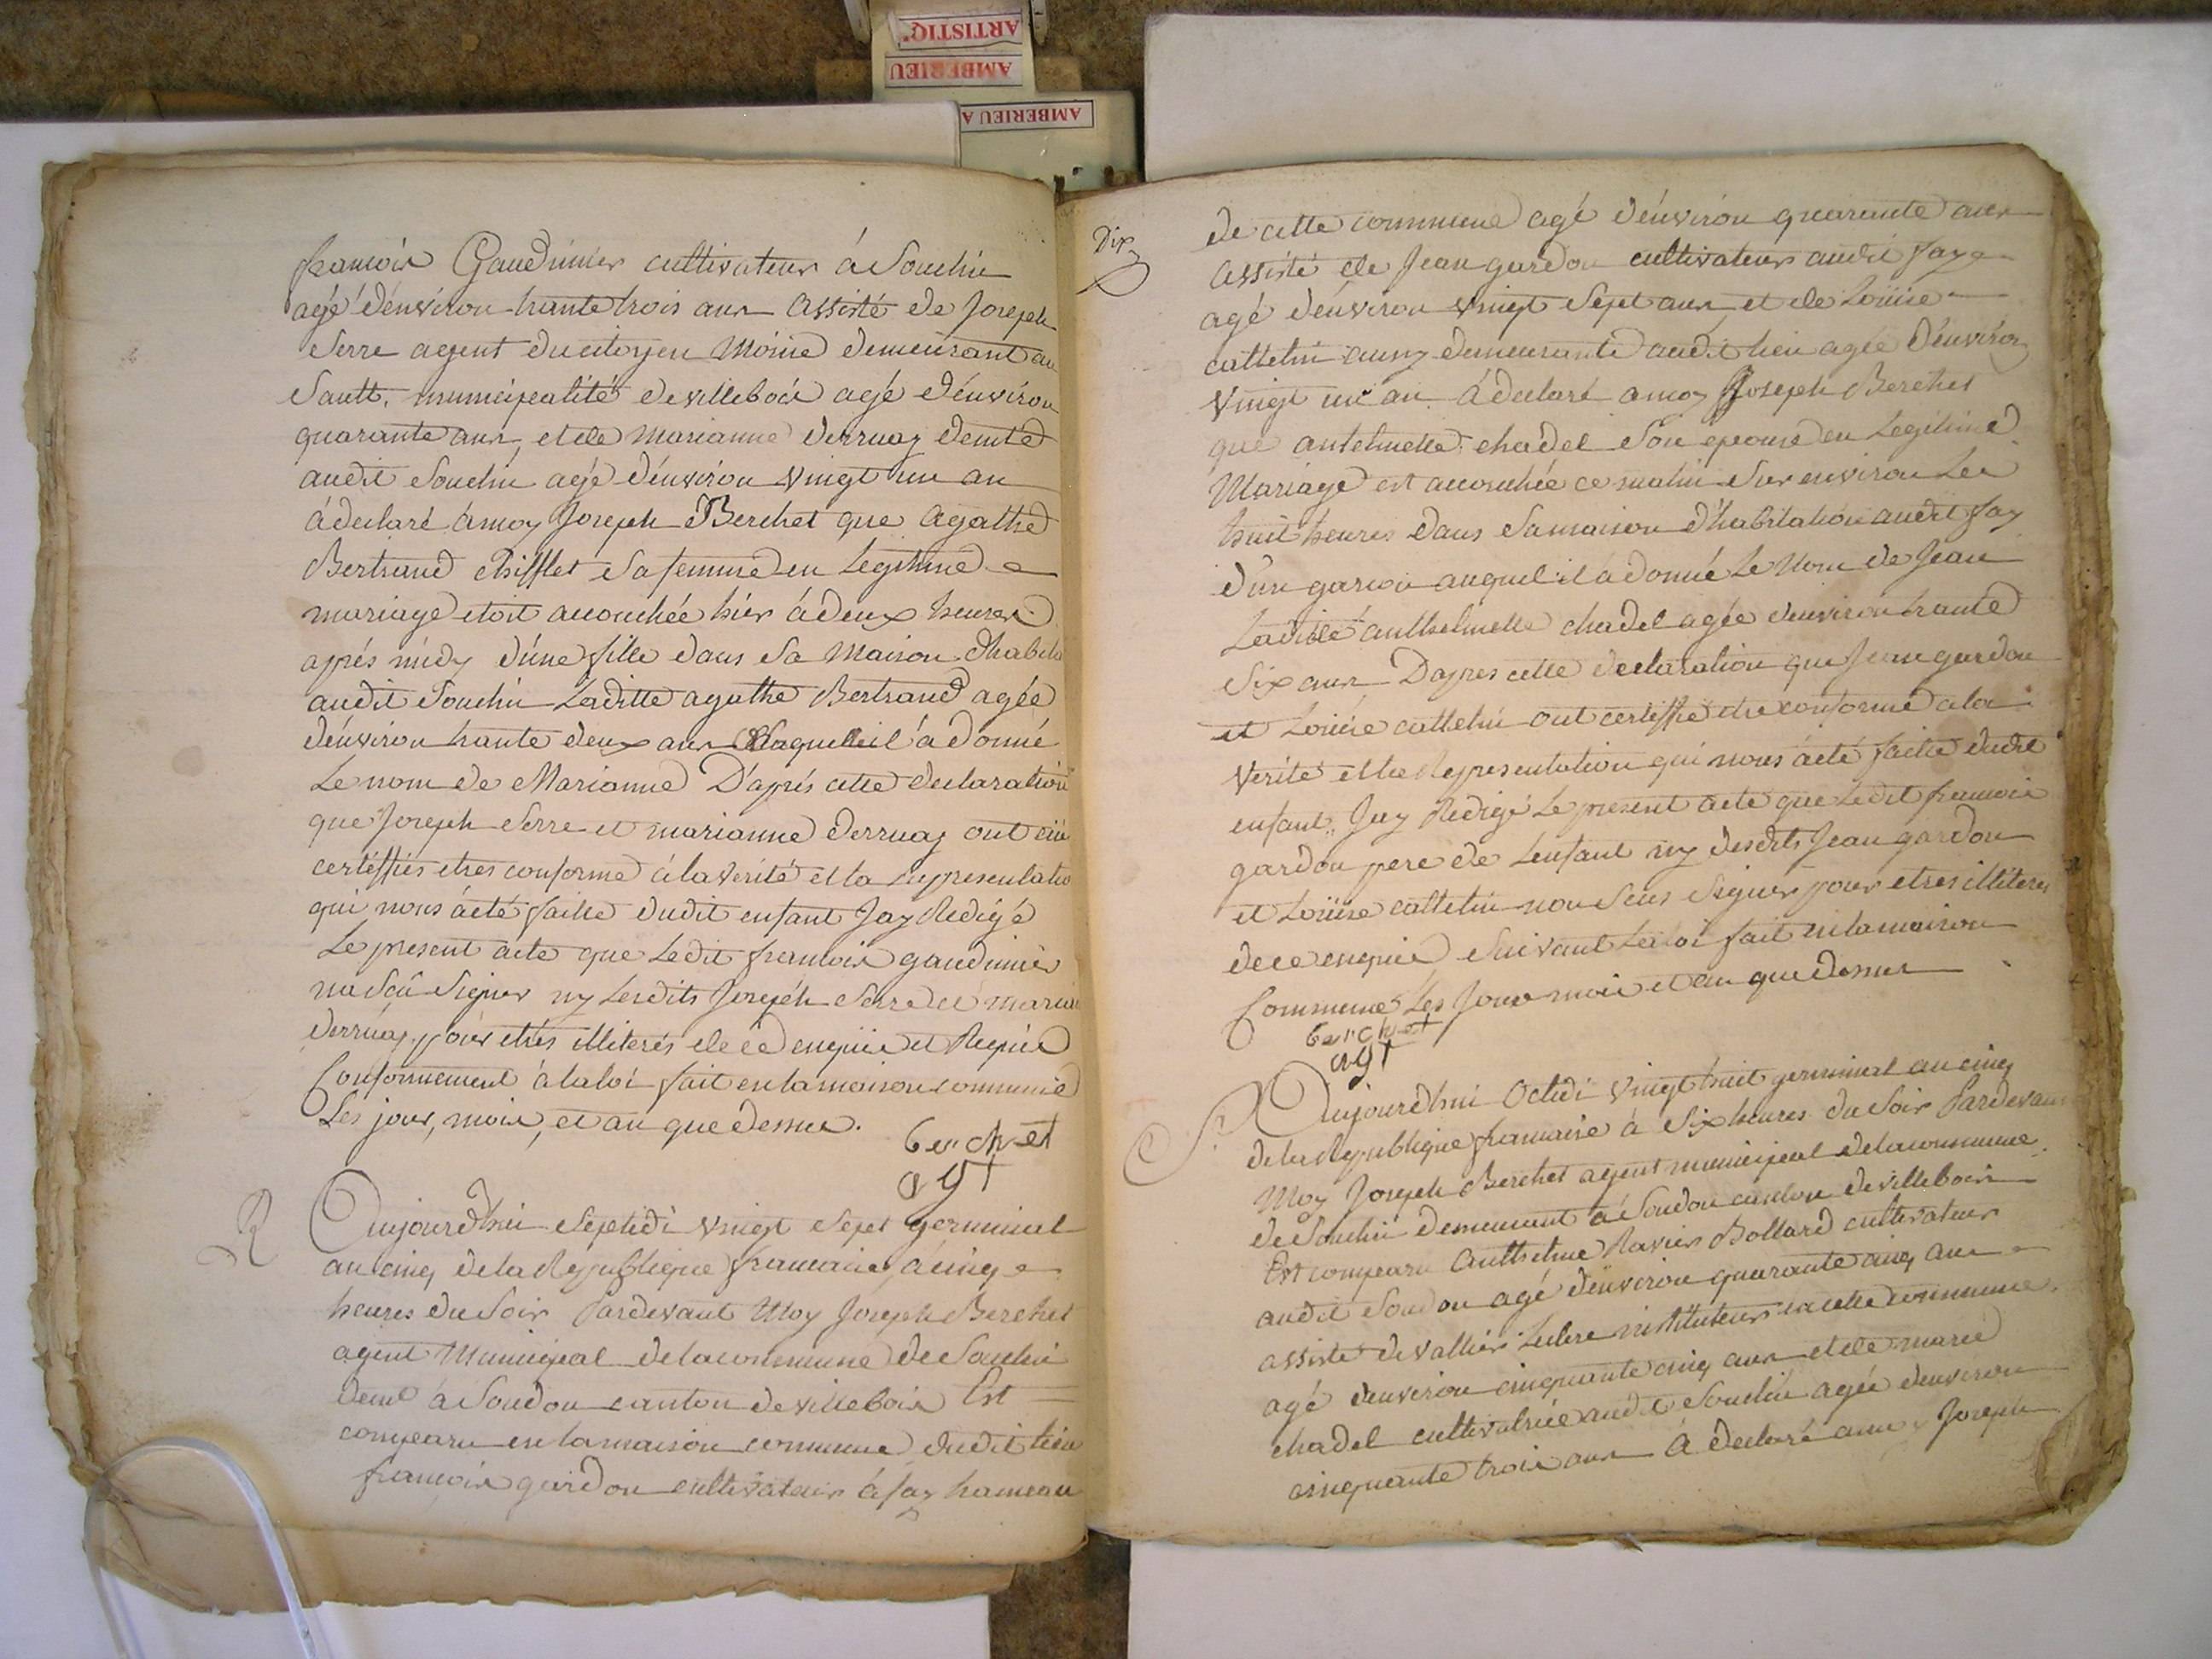 ARTISTIQ'
AMBERIEU
AMBERIEU A
francois Gaudinier cultivateur á Souclin
agé d'énviron trante trois ans assisté de Joseph
Serre agent du citoyen Moine demeurant au
Sault, municipalité de villebois agé d'énviron
quarante ans, et de Marianne derruaz demte
audit Souclin agé d'énviron vingt un an
á declaré á moy Joseph Berchet que Agathe
Bertrand chifflet sa femme en Legitime
mariage etoit accouchée hier á deux heures
aprés midy d'úne fille dans sa maison d'habita
audit Souclin Laditte agathe Bertrand agée
d'énviron trante deux ans Laquelle il á donné
Le nom de Marianne D'aprés cette declaration
que Joseph Serre et marianne derruaz ont
certiffiés etres conforme á la verité et la representatio
qui nous á eté faitte dudit enfant Jay Redigé
Le present acte que Ledit francois gaudinier
na sçû signer ny Lesdits Joseph Serre et
derruaz pour etres illiterés de ce enquis et Requis
Conformement á la loi fait en la maison commune
Les jour, mois, et an que dessus.
berchet
agt
R
Aujourdhui Septidi vingt sept germinal
an cinq de la Republique francaise á cinq
heures du soir Pardevant Moy Joseph Berchet
agent Municipal de la commune de Souclin
demt á Soudon canton de villebois Est
comparu en la maison commune dudit lieu
francois gardon cultivateur á fay hameau
Dix
de cette commune agé d'énviron quarante ans
Assisté de Jean gardon cultivateur audit fay
agé d'énviron vingt sept ans et de Loüise
cattelin aussy demeurante audit lieu agée d'énviron
vingt un an á declaré a moy Joseph Berchet
que antelmelle chadel son epouse en Legitime
Mariage est accouchée ce matin sur environ Les
huit heures dans sa maison d'habitation audit fay
d'un garcon auquel il á donné Le Nom de Jean
Laditte anthelmette chadel agée d'environ trante
six ans D'apres cette declaration que Jean gardon
et Loüise cattelin ont certiffié etre conforme a la
verité et la Representation qui nous á eté faitte dudit
enfant, Jay Redigé Le present acte que Ledit francois
gardon pere de L'enfant ny desdits Jean gardon
et Loüise cattelin non seus signer pour etres illiteres
de ce enquis suivant La loi fait en la maison
Commune Les Jour mois et an que dessus
berchet
agt
Aujourdhui Octidi vingt huit germinal an cinq
de la Republique francaise á six heures du soir Pardevant
Moy Joseph Berchet agent municipal de la commune
de Souclin demeurant á Soudon canton de villebois
Est comparu Anthelme Ravier Bollard cultivateur
audit Soudon agé d'énviron quarante cinq ans
assisté de vallier Leclere instituteur en cette commune
agé d'environ cinquante cinq ans et de marie
chadel cultivatrice audit Souclin agée d'environ
cinquante trois ans á declaré a moy Joseph